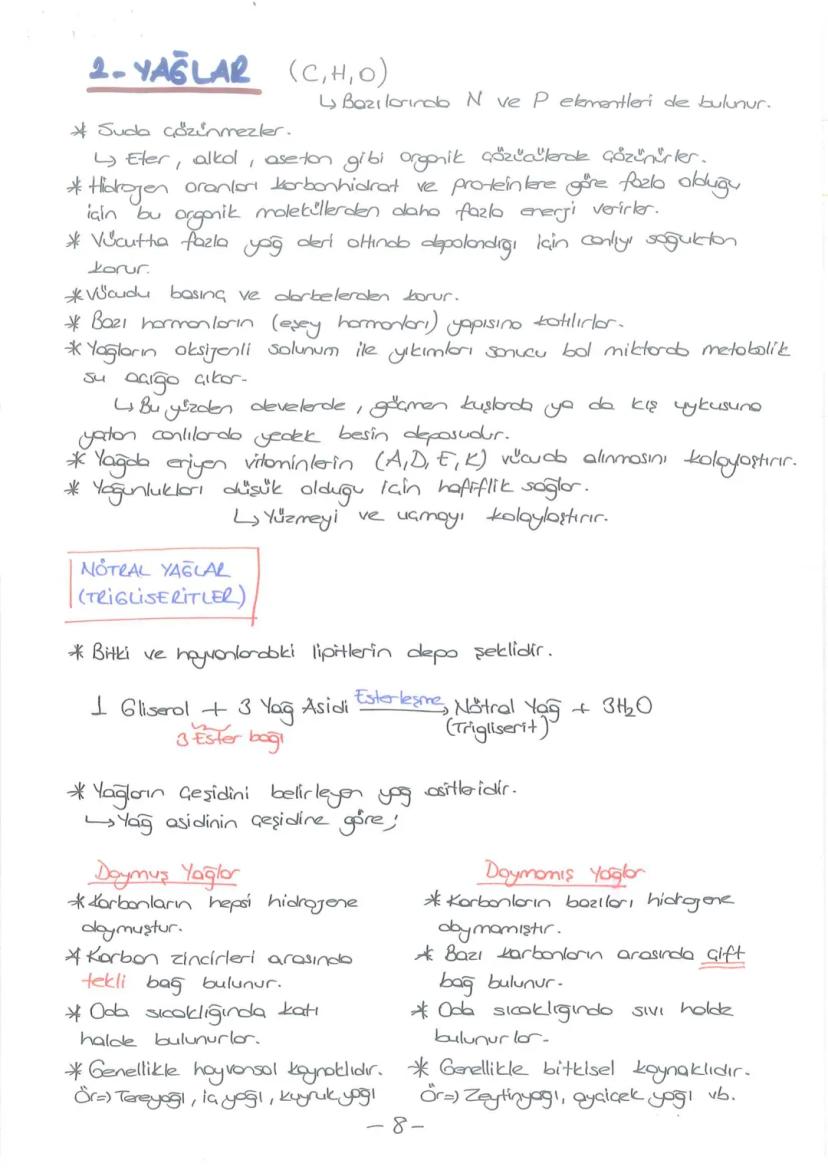 2- YAĞLAR (C,H,O)
↳ Bazılarında N ve P elementleri de bulunur.
* Suda çözünmezler.
↳ Eter, alkol, aseton gibi organik çözücülerde çözünürler.
* Hidrojen oranları karbonhidrat ve proteinlere göre fazla olduğu
için bu organik moleküllerden daha fazla enerji verirler.
* Vücutta fazla yağ deri altında depolandığı için canlıyı soğuktan
korur.
* Vücudu basınç ve darbelerden korur.
* Bazı hormonların (eşey hormonları) yapısına katılırlar.
* Yağların oksijenli solunum ile yıkımları sonucu bol miktarda metabolik
su açığa çıkar.
↳ Bu yüzden develerde, göçmen kuşlarda ya da kış uykusuna
yatan canlılarda yedek besin deposudur.
* Yağda eriyen vitaminlerin (A,D,E,K) vücuda alınmasını kolaylaştırır.
* Yoğunlukları düşük olduğu için hafiflik sağlar.
↳ Yüzmeyi ve uçmayı kolaylaştırır.
NÖTRAL YAĞLAR
(TRİGLİSERİTLER)
* Bitki ve hayvanlardaki lipitlerin depo şeklidir.
1 Gliserol + 3 Yağ Asidi Esterleşme → Nötral Yağ + 3H₂O
3 Ester bağı (Trigliserit)
* Yağların çeşidini belirleyen yağ asitleridir.
↳ Yağ asidinin çeşidine göre;
Doymuş Yağlar
* Karbonların hepsi hidrojene
doymuştur.
* Karbon zincirleri arasında
tekli bağ bulunur.
* Oda sıcaklığında katı
halde bulunurlar.
* Genellikle hayvansal kaynaklıdır.
Ör=) Tereyağı, iç yağı, kuyruk yağı
Doymamış Yağlar
* Karbonların bazıları hidrojene
doymamıştır.
* Bazı karbonların arasında çift
bağ bulunur.
* Oda sıcaklığında sıvı halde
bulunurlar.
* Genellikle bitkisel kaynaklıdır.
Ör=) Zeytinyağı, ayçiçek yağı vb.
- 8 -